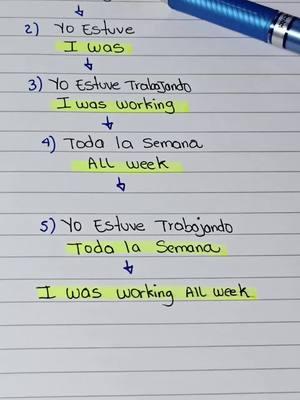 2) Yo Estuve
I was
3) Yo Estuve Trabajando
I was working
4) Toda la Semana
All week
5) Yo Estuve Trabajando
Toda la Semana
I was working All week